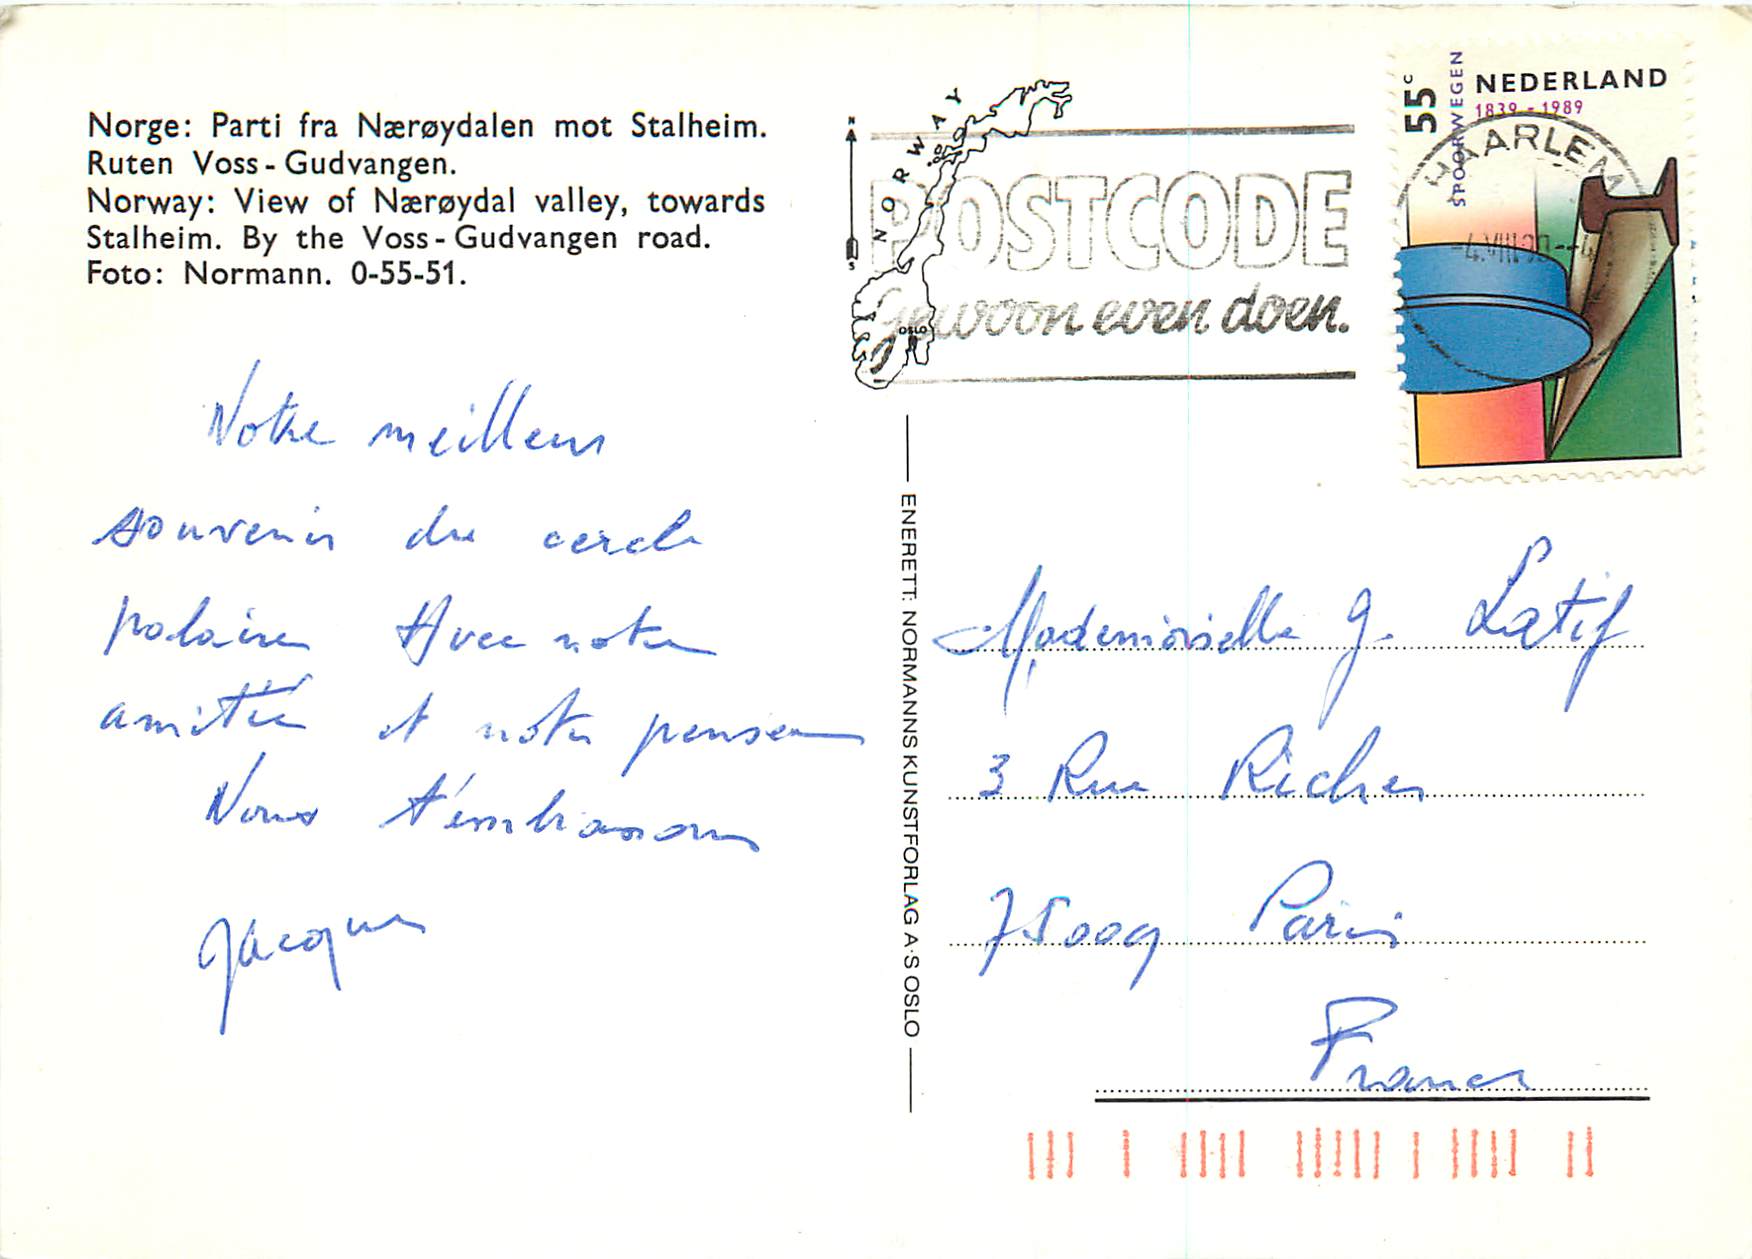 Norge: Parti fra Nærøydalen mot Stalheim.
Ruten Voss - Gudvangen.
Norway: View of Nærøydal valley, towards
Stalheim. By the Voss - Gudvangen road.
Foto: Normann. 0-55-51.
Notre meilleur
souvenir du cercle
polaire Avec notre
amitié et notre pensée
Nous t'embrassons
Jacques
N
S
NORWAY
OSLO
POSTCODE
Gewoon even doen.
55 c
SPOORWEGEN
NEDERLAND
1839 - 1989
HAARLEM
ENERETT: NORMANNS KUNSTFORLAG A·S OSLO
Mademoiselle J. Latif
3 Rue Richer
75009 Paris
France